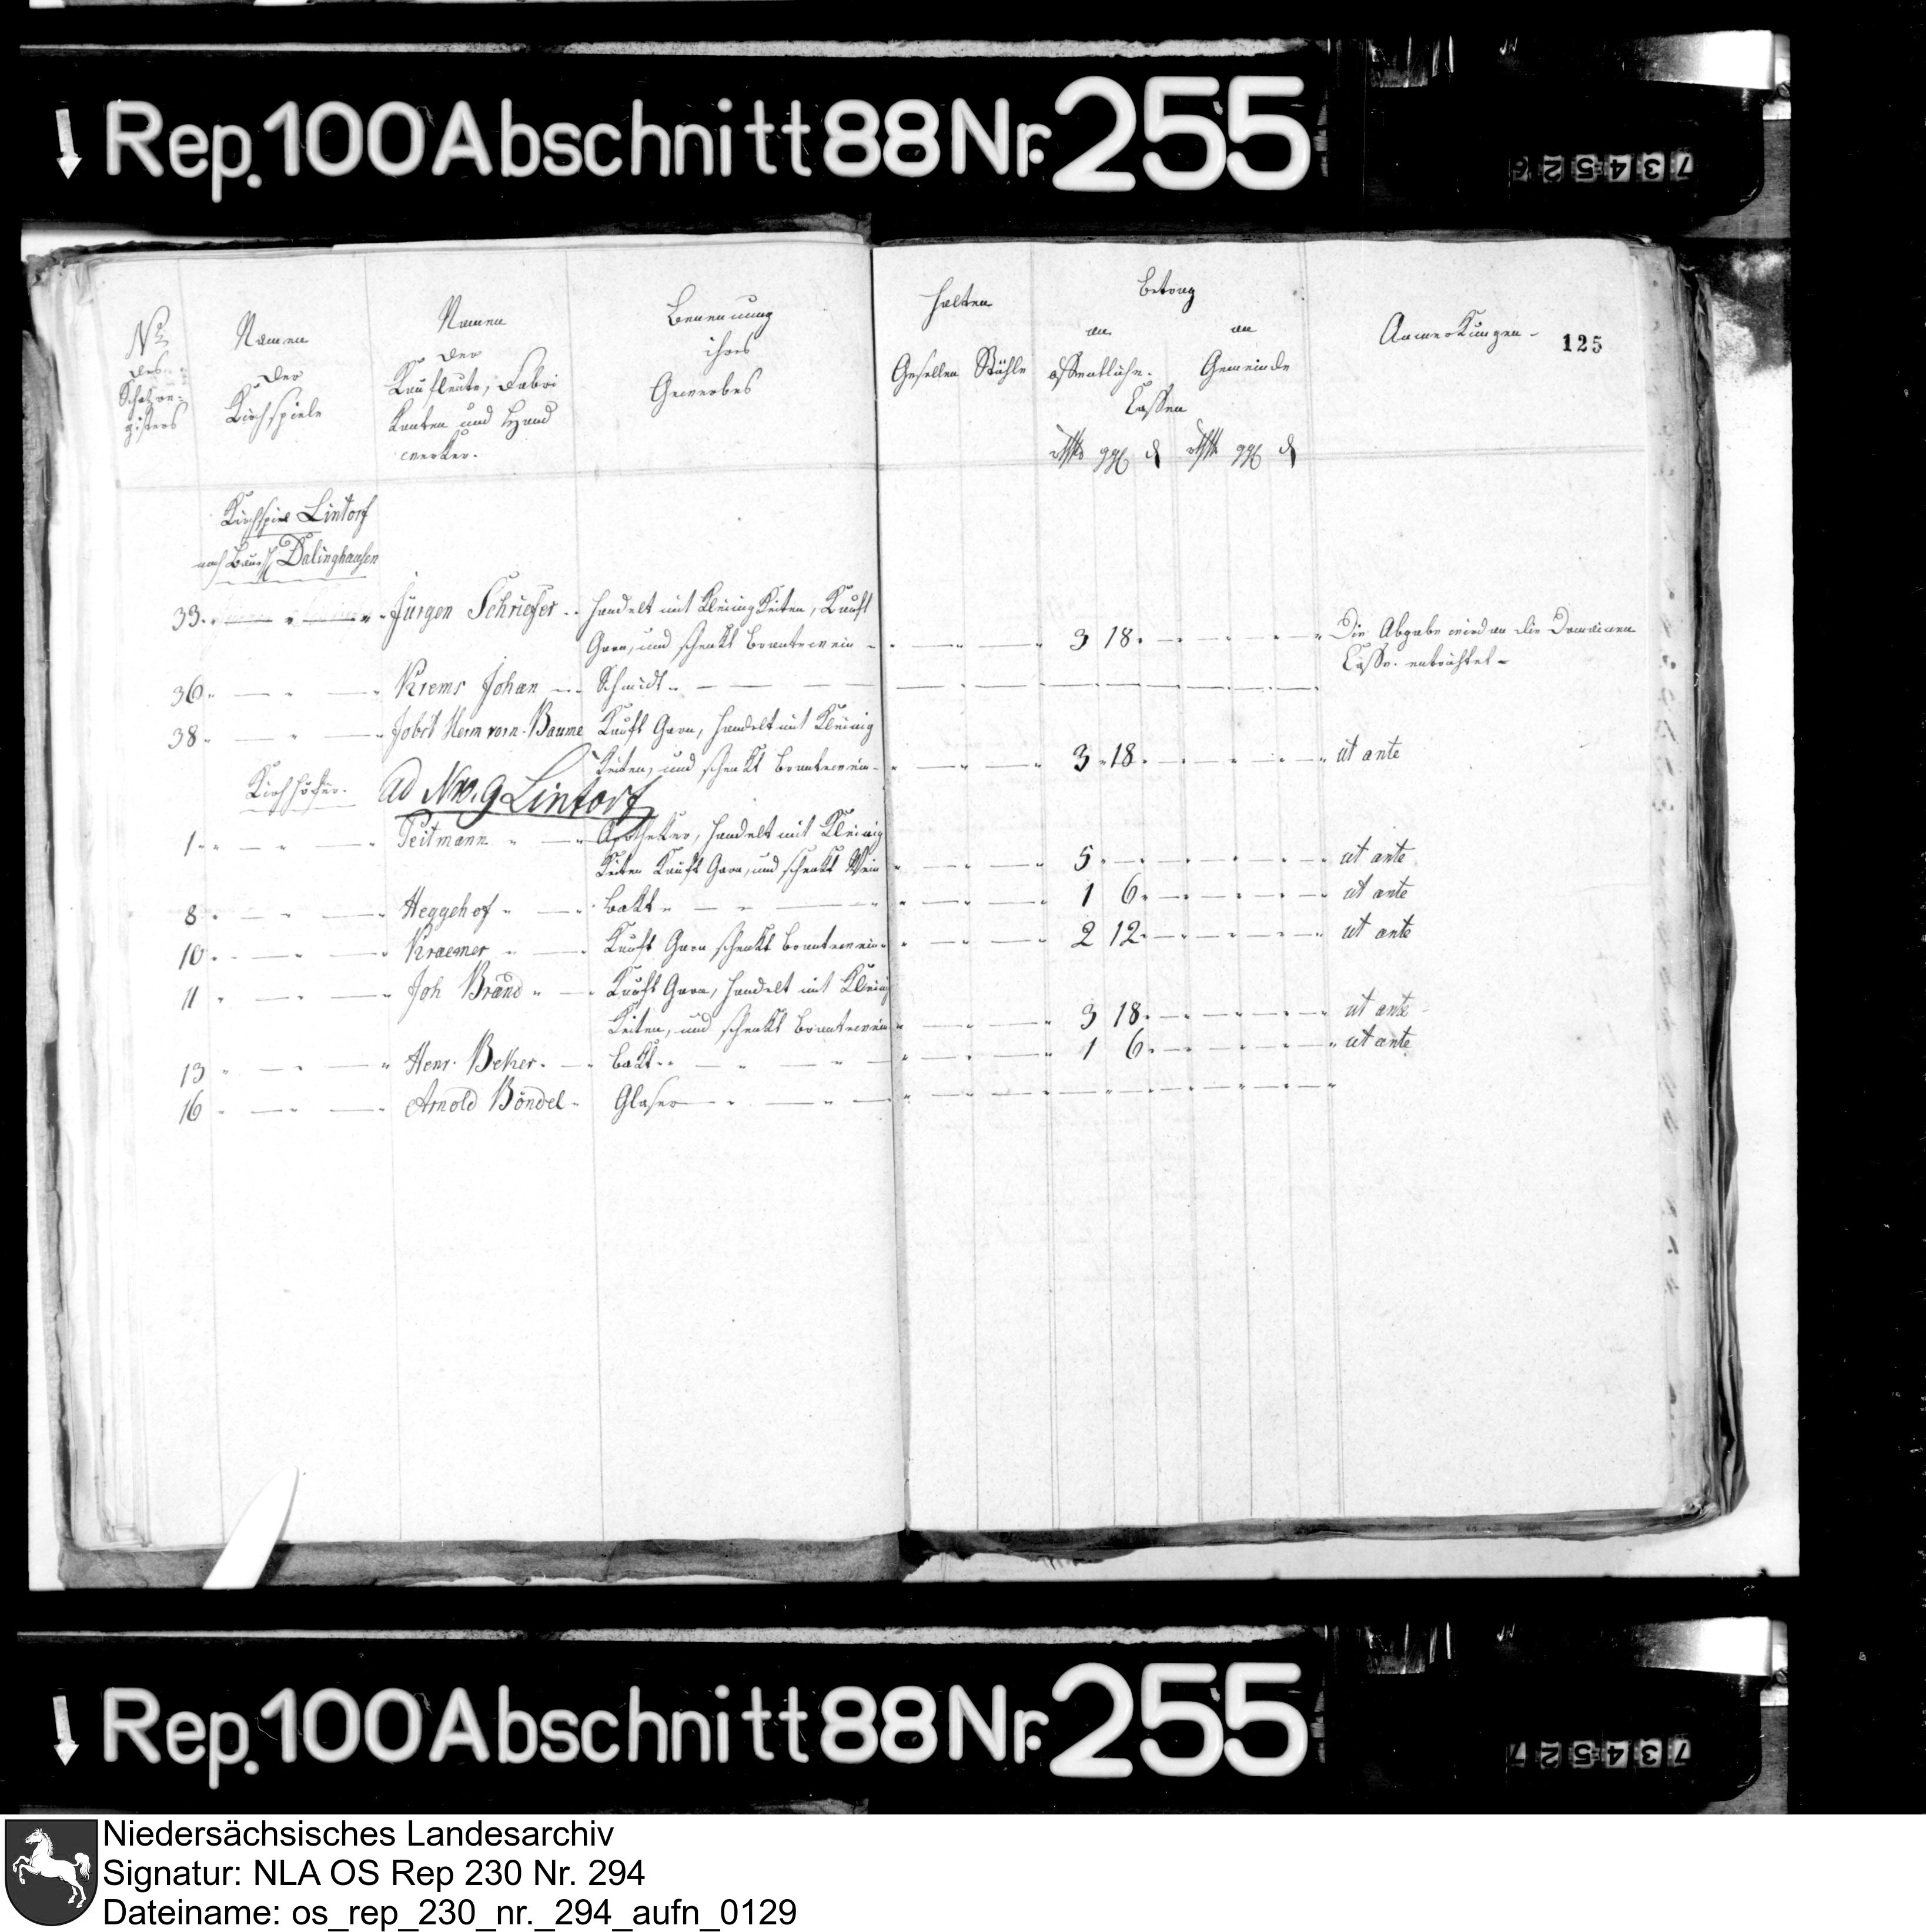 Rep. 100 Abschnitt 88 Nr. 255
734526
125
No
des
Schatzre-
gisters
Namen
der
Kirchspiele
Namen
der
Kaufleute, Fabri
kanten und Hand
werker.
Benennung
ihres
Gewerbes
Halten
Gesellen Stühle
Betrag
an an
öffentliche. Gemeinde
Cassen
rthlr ggl d rthlr ggl d
Anmerkungen
Kirchspiel Lintorf
Dalinghausen
33. Jürgen Schriefer Handelt mit Kleinigkeiten, Kauft
Garn, und schenkt Brantewein 3 18 Die Abgabe wird an die Domainen
Casse entrichtet
36 Krems Johan Schmidt
38 Jobst Herm vorn Baume Kauft Garn, Handelt mit Kleinig
keiten, und schenkt Brantewein 3 18 ut ante
Kirchhöfer. ad Nro. 9 Lintorf
1 Peitmann Apotheker, Handelt mit Kleinig
keiten Kauft Garn, und schenkt Wein 5 ut ante
8 Heggehof backt 1 6 ut ante
10 Kraemer Kauft Garn schenkt Brantewein 2 12 ut ante
11 Joh Brand Kauft Garn, Handelt mit Kleinig
keiten, und schenkt Brantewein 3 18 ut ante
13 Henr. Beker backt 1 6 ut ante
16 Arnold Böndel Glaser
Rep. 100 Abschnitt 88 Nr. 255
734527
Niedersächsisches Landesarchiv
Signatur: NLA OS Rep 230 Nr. 294
Dateiname: os_rep_230_nr._294_aufn_0129